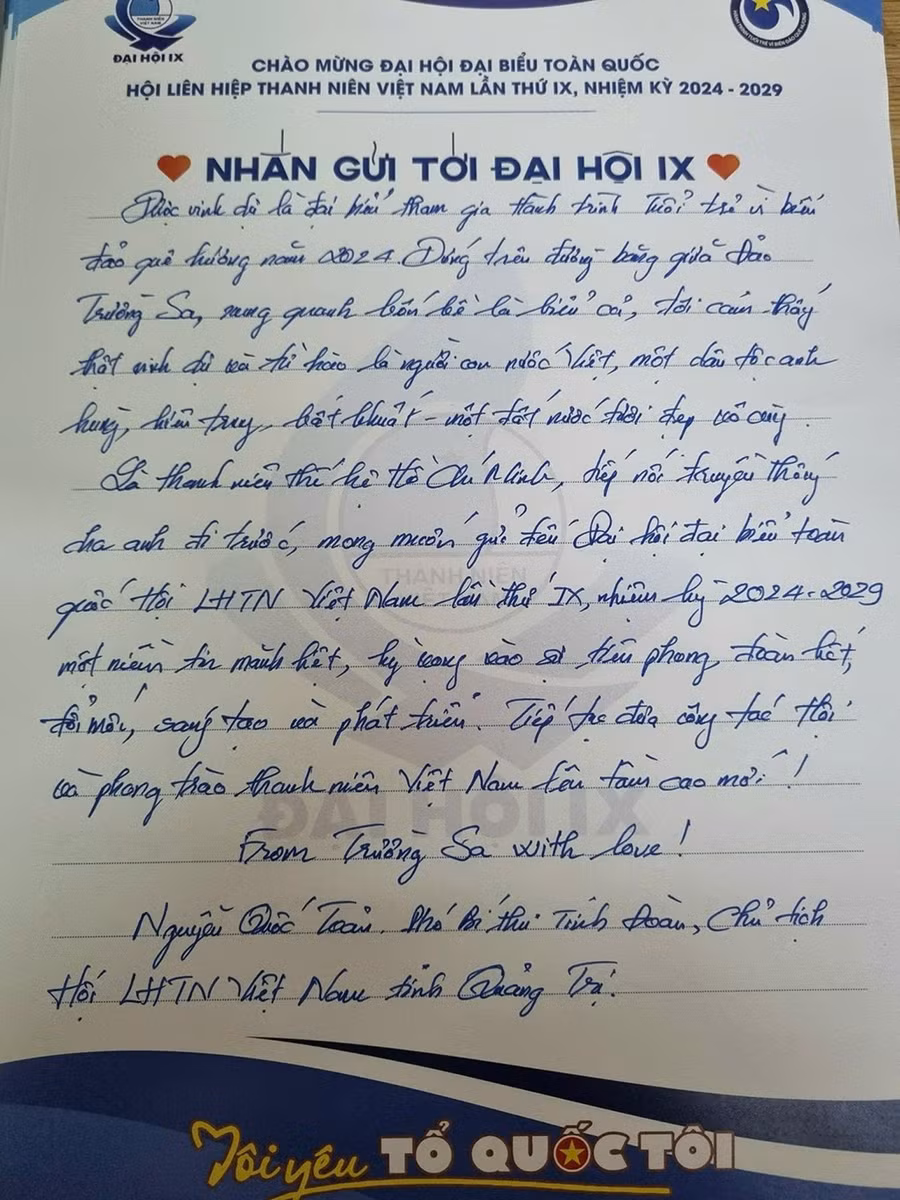 THANH NIÊN
VIỆT NAM
ĐẠI HỘI IX
CHÀO MỪNG ĐẠI HỘI ĐẠI BIỂU TOÀN QUỐC
HỘI LIÊN HIỆP THANH NIÊN VIỆT NAM LẦN THỨ IX, NHIỆM KỲ 2024 - 2029
NHẮN GỬI TỚI ĐẠI HỘI IX
Được vinh dự là đại biểu tham gia Hành trình Tuổi trẻ vì biển
đảo quê hương năm 2024. Đứng trên đường băng giữa Đảo
Trường Sa, xung quanh bốn bề là biển cả, tôi cảm thấy
thật vinh dự và tự hào là người con nước Việt, một dân tộc anh
hùng, kiên trung, bất khuất - một đất nước tươi đẹp vô cùng.
Là thanh niên thế hệ Hồ Chí Minh, tiếp nối truyền thống
cha anh đi trước, mong muốn gửi đến Đại hội đại biểu toàn
quốc Hội LHTN Việt Nam lần thứ IX, nhiệm kỳ 2024-2029
một niềm tin mãnh liệt, kỳ vọng vào sự tiên phong, đoàn kết,
đổi mới, sáng tạo và phát triển. Tiếp tục đưa công tác Hội
và phong trào thanh niên Việt Nam lên tầm cao mới!
From Trường Sa with love!
Nguyễn Quốc Toản. Phó Bí thư Tỉnh Đoàn, Chủ tịch
Hội LHTN Việt Nam tỉnh Quảng Trị.
THANH NIÊN
VIỆT NAM
ĐẠI HỘI IX
Tôi yêu TỔ QUỐC TÔI